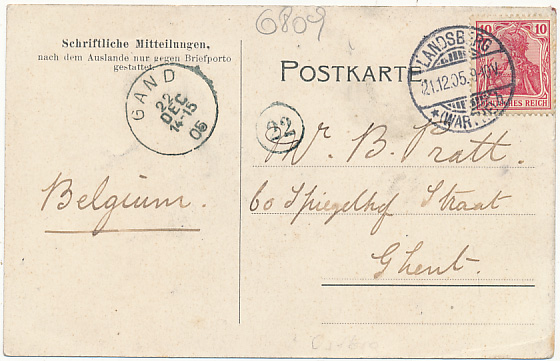 6809
Schriftliche Mitteilungen,
nach dem Auslande nur gegen Briefporto
gestattet.
POSTKARTE
10 10
DEUTSCHES REICH
LANDSBERG
21.12.05.9-10V.
*(WAR
GAND
22
DEC
14-15
05
32
Mr. B. Pratt.
60 Spiegelhof Straat
Ghent.
Belgium.